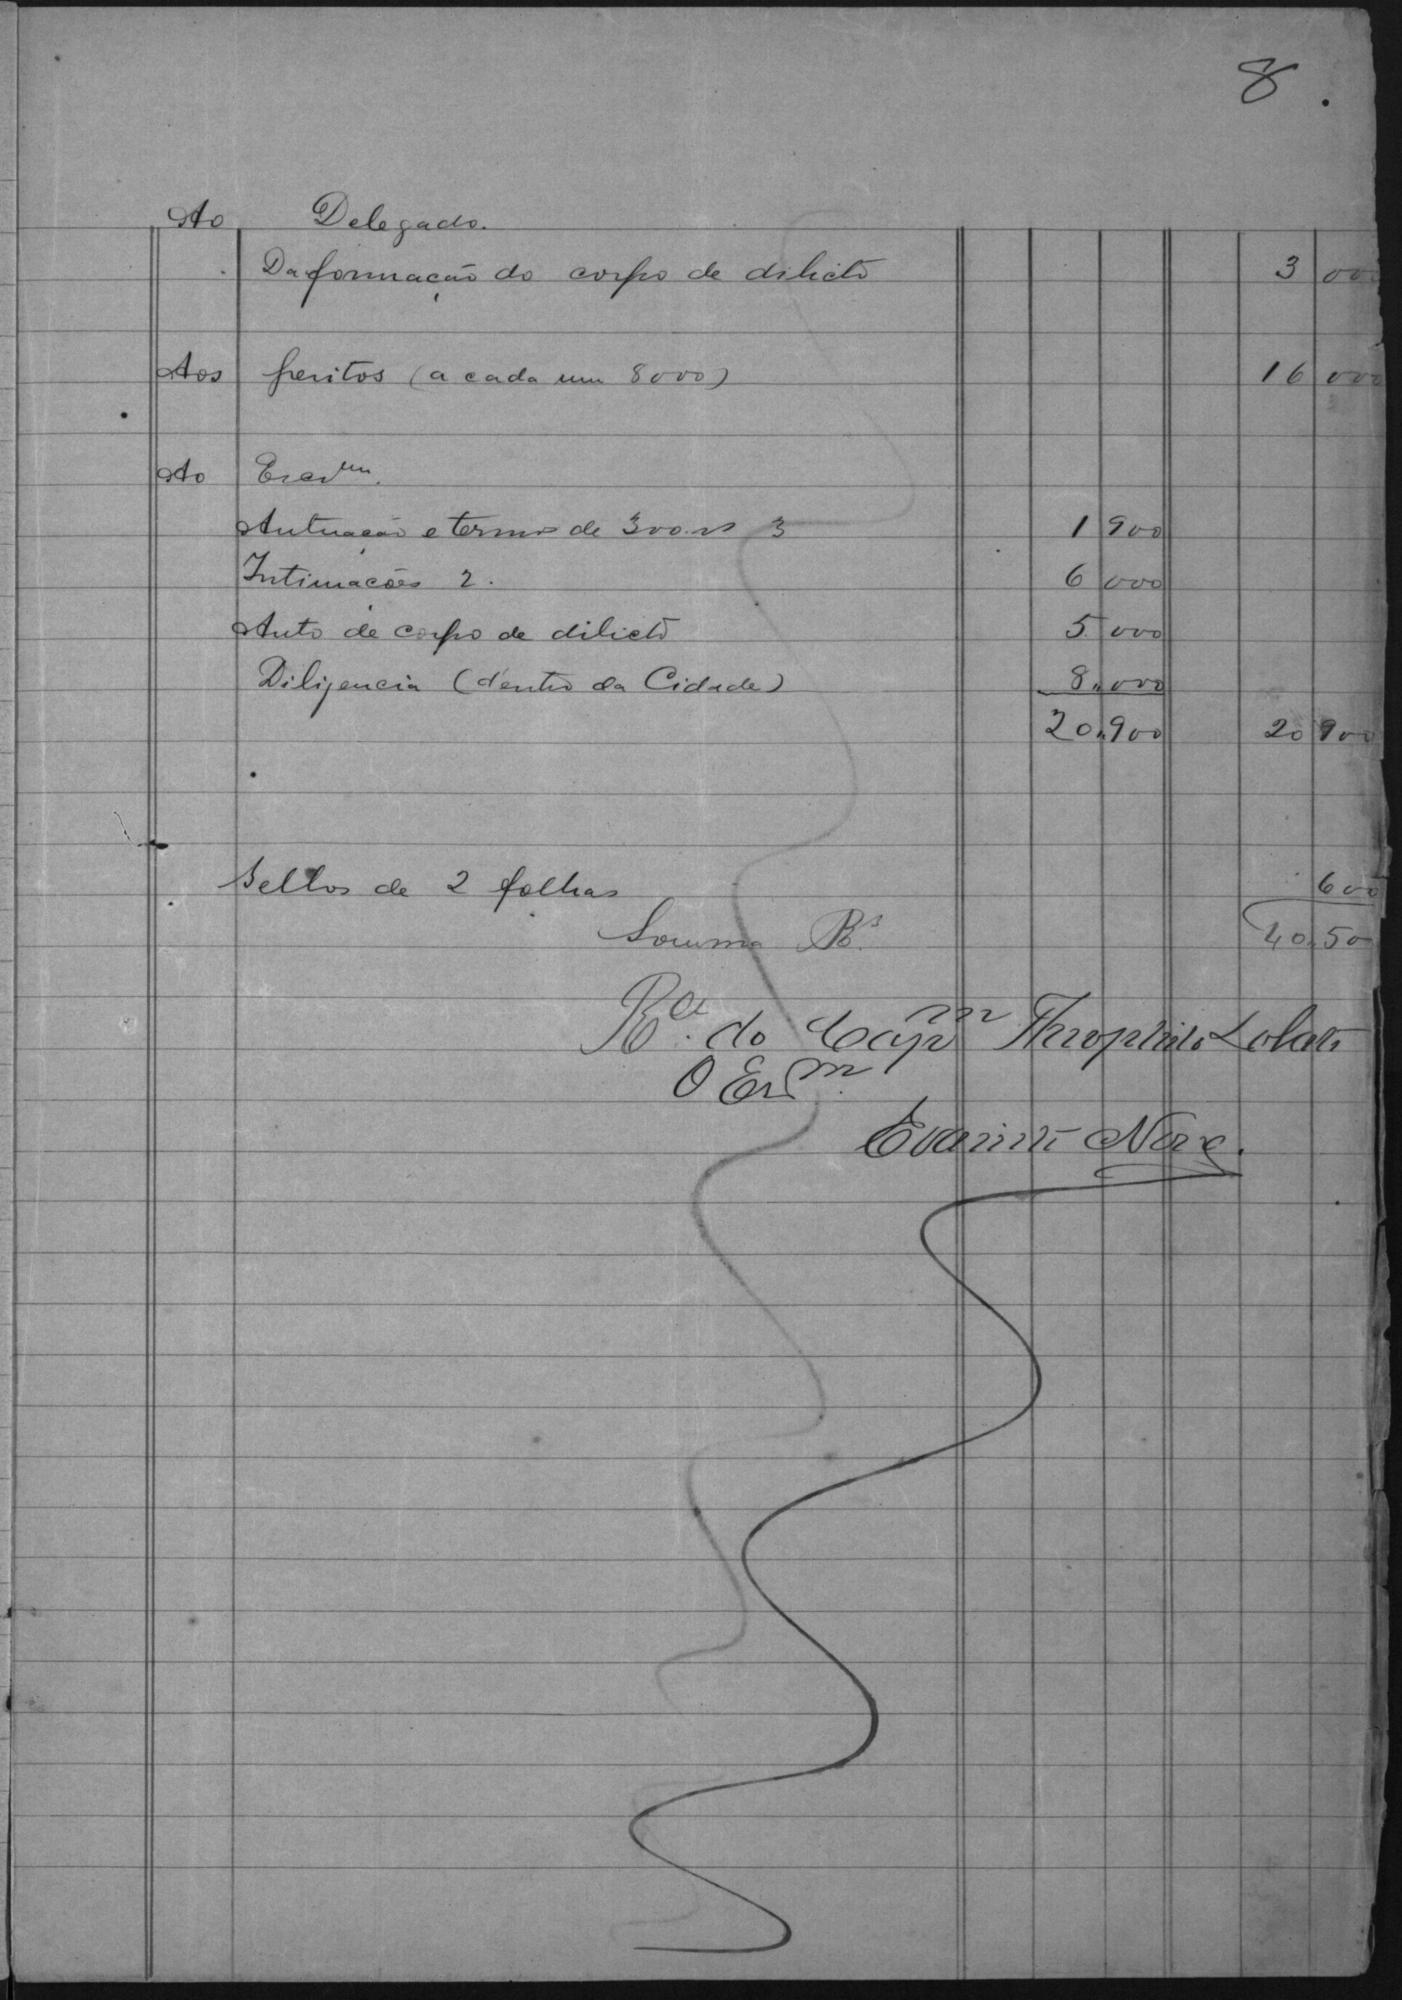 8.
Ao Delegado.
Da formação do corpo de dilicto 3 000
Aos peritos (a cada um 8000) 16 000
Ao Escrm.
Autuação e termos de 300 rs 3 1 900
Intimações 2. 6 000
Auto de corpo de dilicto 5 000
Diligencia (dentro da Cidade) 8.000
20.900 20 900
Sellos de 2 folhas 600
Somma Rs. 40.50
do Theophilo Lobato
O Escm.
Evaristo